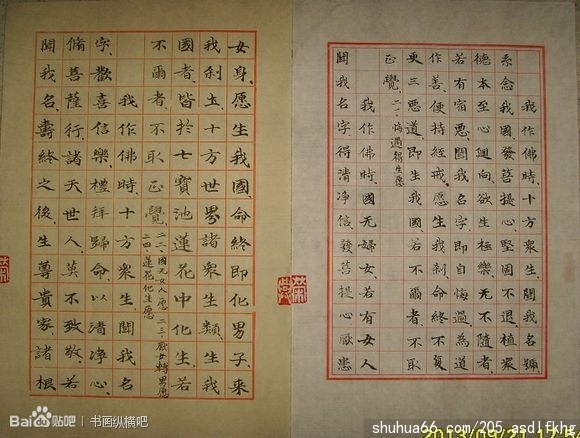 我作佛時、十方衆生、聞我名號、
系念我國、發菩提心、堅固不退、植衆
德本、至心迴向、欲生極樂、无不隨者、
若有宿惡、聞我名字、即自悔過、為道
作善、便持經戒、愿生我剎、命終不復
更三惡道、即生我國、若不爾者、不取
正覺、二一、悔過得生愿
我作佛時、國无婦女、若有女人
聞我名字、得清淨信、發菩提心、厭患
女身、愿生我國、命終即化男子、来
我剎土、十方世界諸衆生類、生我
國者、皆於七寶池蓮花中化生、若
不爾者、不取正覺、二二、國无女人愿 二三、厭女轉男愿
二四、蓮花化生愿
我作佛時、十方衆生、聞我名
字、歡喜信樂、禮拜歸命、以清淨心、
脩菩薩行、諸天世人、莫不致敬、若
聞我名、壽終之後、生尊貴家、諸根
Bai du 贴吧 | 书画纵横吧
shuhua66.com/205.asdlfkhg